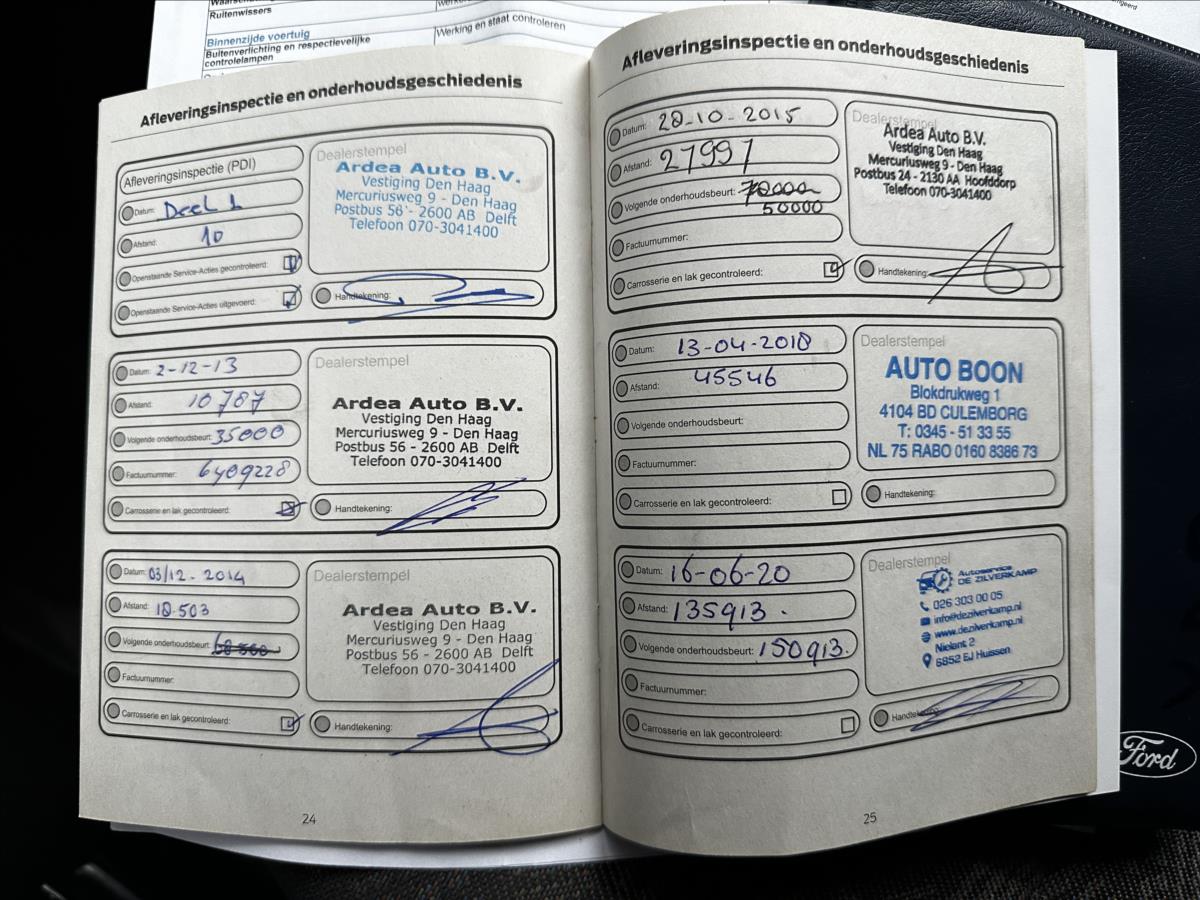 Ruitenwissers
Binnenzijde voertuig
Buitenverlichting en respectievelijke
controlelampen
Werking en staat controleren
Afleveringsinspectie en onderhoudsgeschiedenis
Afleveringsinspectie (PDI)
Datum: Deel 1
Afstand: 10
Openstaande Service-Acties gecontroleerd:
Openstaande Service-Acties uitgevoerd:
Dealerstempel
Ardea Auto B.V.
Vestiging Den Haag
Mercuriusweg 9 - Den Haag
Postbus 56 - 2600 AB Delft
Telefoon 070-3041400
Handtekening:
Datum: 2-12-13
Afstand: 10787
Volgende onderhoudsbeurt: 35000
Factuurnummer: 6409228
Carrosserie en lak gecontroleerd:
Dealerstempel
Ardea Auto B.V.
Vestiging Den Haag
Mercuriusweg 9 - Den Haag
Postbus 56 - 2600 AB Delft
Telefoon 070-3041400
Handtekening:
Datum: 03/12. 2014
Afstand: 18.503
Volgende onderhoudsbeurt:
Factuurnummer:
Carrosserie en lak gecontroleerd:
Dealerstempel
Ardea Auto B.V.
Vestiging Den Haag
Mercuriusweg 9 - Den Haag
Postbus 56 - 2600 AB Delft
Telefoon 070-3041400
Handtekening:
24
Afleveringsinspectie en onderhoudsgeschiedenis
Datum: 28-10-2015
Afstand: 27997
Volgende onderhoudsbeurt: 70000
50000
Factuurnummer:
Carrosserie en lak gecontroleerd:
Dealerstempel
Ardea Auto B.V.
Vestiging Den Haag
Mercuriusweg 9 - Den Haag
Postbus 24 - 2130 AA Hoofddorp
Telefoon 070-3041400
Handtekening:
Datum: 13-04-2018
Afstand: 45546
Volgende onderhoudsbeurt:
Factuurnummer:
Carrosserie en lak gecontroleerd:
Dealerstempel
AUTO BOON
Blokdrukweg 1
4104 BD CULEMBORG
T: 0345 - 51 33 55
NL 75 RABO 0160 8386 73
Handtekening:
Datum: 16-06-20
Afstand: 135913.
Volgende onderhoudsbeurt: 150913.
Factuurnummer:
Carrosserie en lak gecontroleerd:
Dealerstempel
Autoservice
DE ZILVERKAMP
026 303 00 05
info@dezilverkamp.nl
www.dezilverkamp.nl
Nielant 2
6852 EJ Huissen
Handtekening:
25
Ford